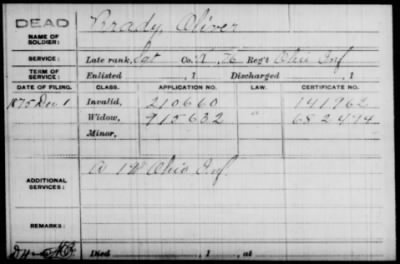 DEAD
NAME OF SOLDIER: Brady, Oliver
SERVICE: Late rank, Sgt Co. K, 76 Reg't Ohio Inf
TERM OF SERVICE: Enlisted , 1 Discharged , 1
DATE OF FILING. CLASS. APPLICATION NO. LAW. CERTIFICATE NO.
1875 Dec 1 Invalid, 210660 141962
Widow, 915632 " 682494
Minor,
ADDITIONAL SERVICES: Ohio Inf.
REMARKS:
Died , 1 , at